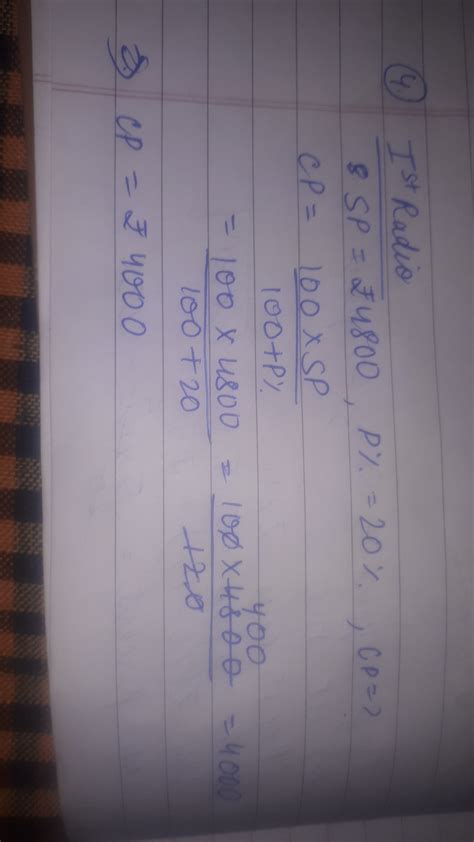 (4) Ist Radio
SP = ₹4800, P% = 20%, CP = ?
CP = 100 × SP / 100+P%
= 100 × 4800 / 100 + 20 = 100 × 4800 / 120 = 4000
400
CP = ₹ 4000